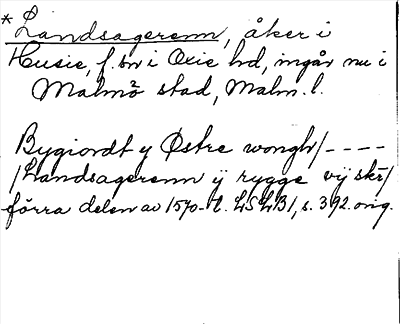 * Landsagerenn, åker i
Husie, f. sn i Oxie hd, ingår nu i
Malmö stad, Malm. l.
Bygiordt y Østre wongh/----
/Landsagerenn ij rygge vij skr/
förra delen av 1570-t. LSLB1, s. 392. orig.